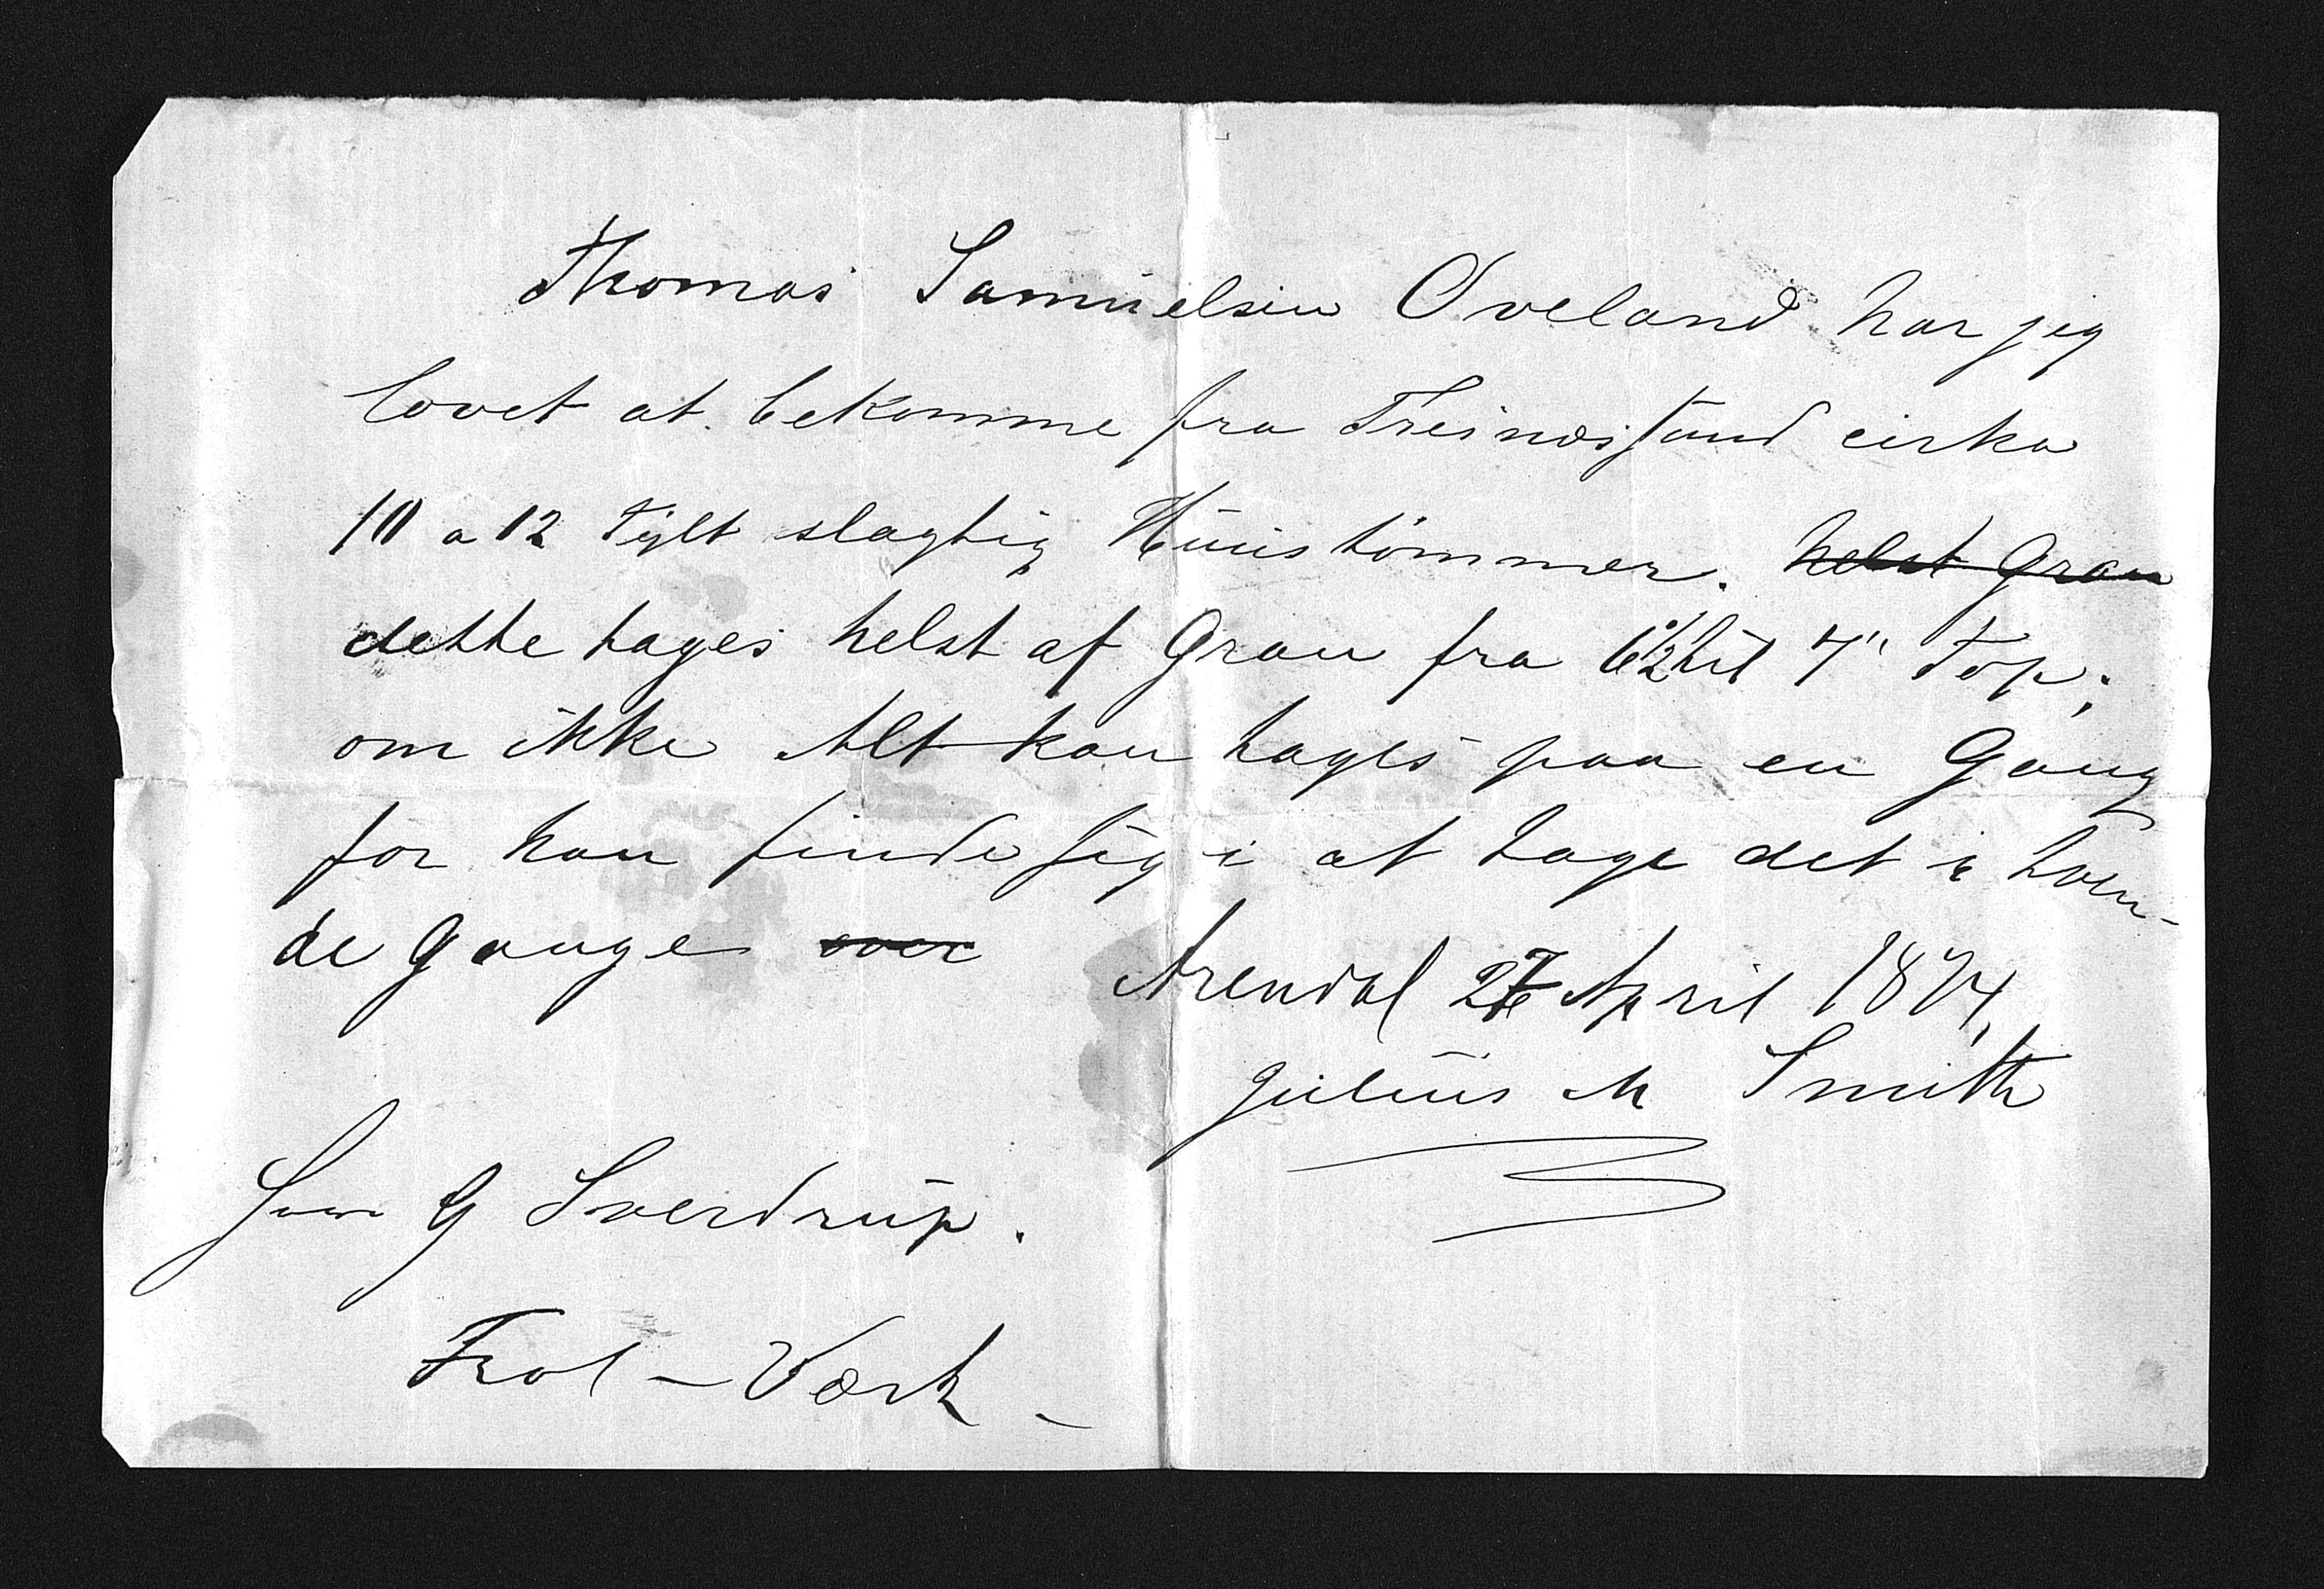 Thomas Samuelsen Oveland har jeg
lovet at bekomme fra Treinæssund cirka
10 a 12 Tylt slagtig Huustømmer. helst Gran
dette tages helst af Gran fra 6½" til 7" Top;
om ikke Alt kan tages paa en Gang
for han finde sig i at tage det i tven-
de Gange over
Arendal 27 April 1874,
Julius M Smith
G Sverdrup.
Frol - Værk -